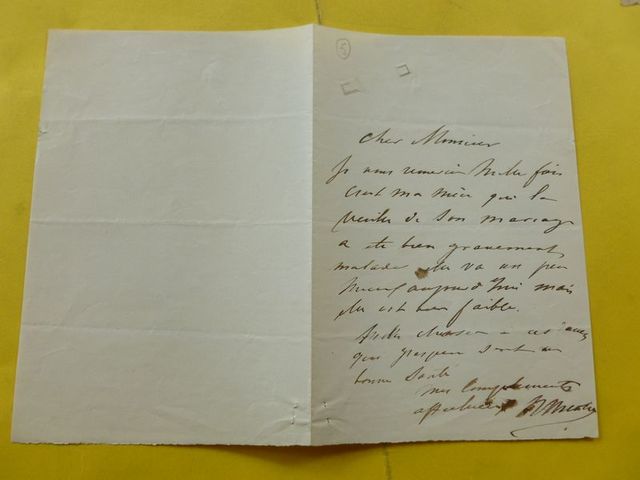 5
Cher Monsieur
Je vous remercie mille fois
C'est ma mère qui la
veille de son mariage
a été bien gravement
malade elle va un peu
mieux aujourd'hui mais
elle est bien faible.
que j'espère sont en
bonne santé
mes compliments
affectueux